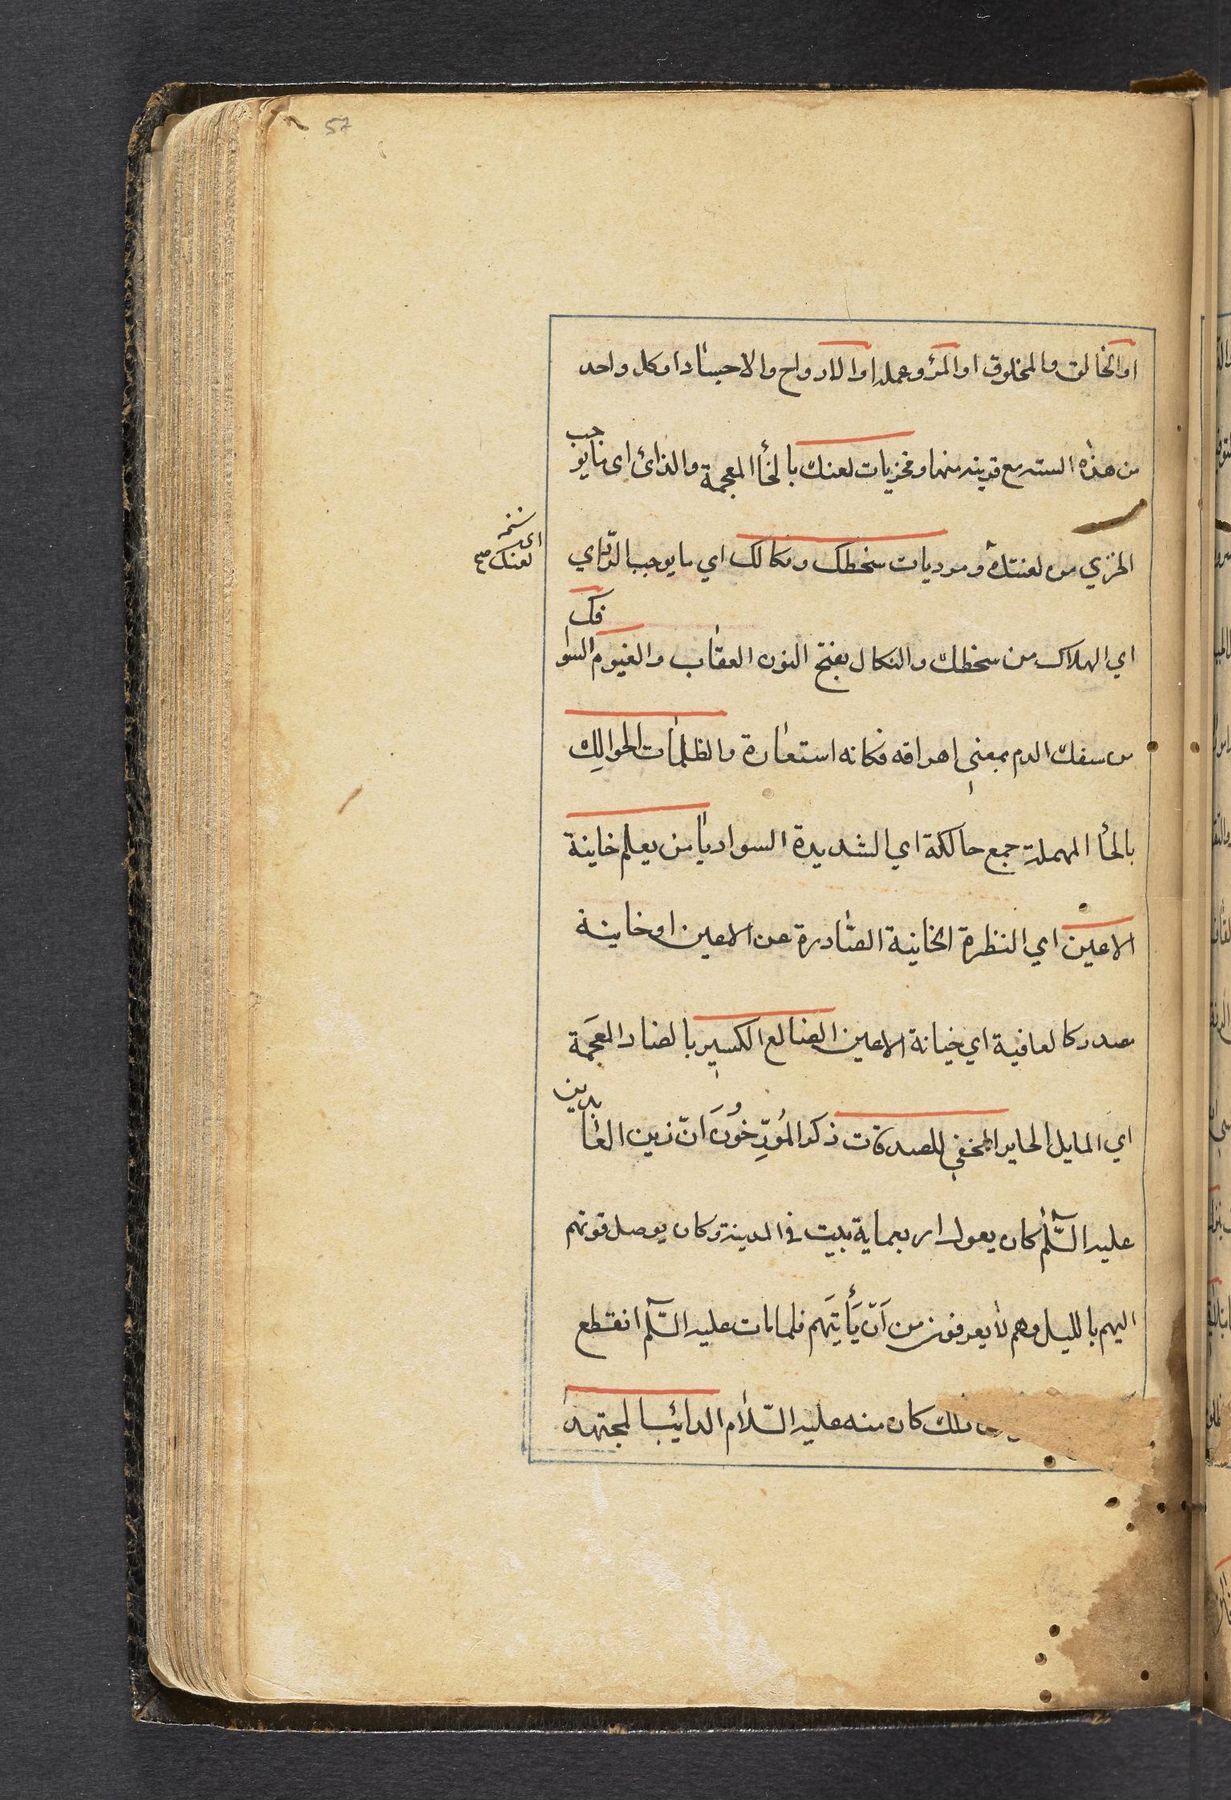 57
او الخالق والمخلوق او المرؤ وعمله او الارواح والاجساد او كل واحد
من هذه الستة مع قرينه منها ومخزيات لعنك بالخأ المعجمة والذائ اى ما يوجب
الخزي من لعنتك ومرديات سخطك ونكالك اي ما يوجب الردّاي
اى لعنك
اي الهلاك من سخطك والنكال بفتح النون العقاب والغيوم السوافك
من سفك الدم بمعنى اهراقه فكانه استعارة والظلمات الحوالك
بالحأ المهملة جمع حالكة اي الشديدة السواد يا من يعلم خاينة
الاعين اي النظرة الخاينة الصّادرة عن الاعين او خاينة
مصدر كالعافية اي خيانة الاعين الضالع الكسير بالضاد المعجمة
اي المايل الجاير المخفي للصدقات ذكر المُورِّخُونَ انّ زين العابدين
عليه السَّلم كان يعول اربعماية بيت في المدينة وكان يوصل قوتهم
اليهم بالليل وهم لا يعرفون من اَنّ يَأتيَهم فلما مات عليه السَّلم انقطع
ذلك كان منه عليه السّلام الدائب المجتهد